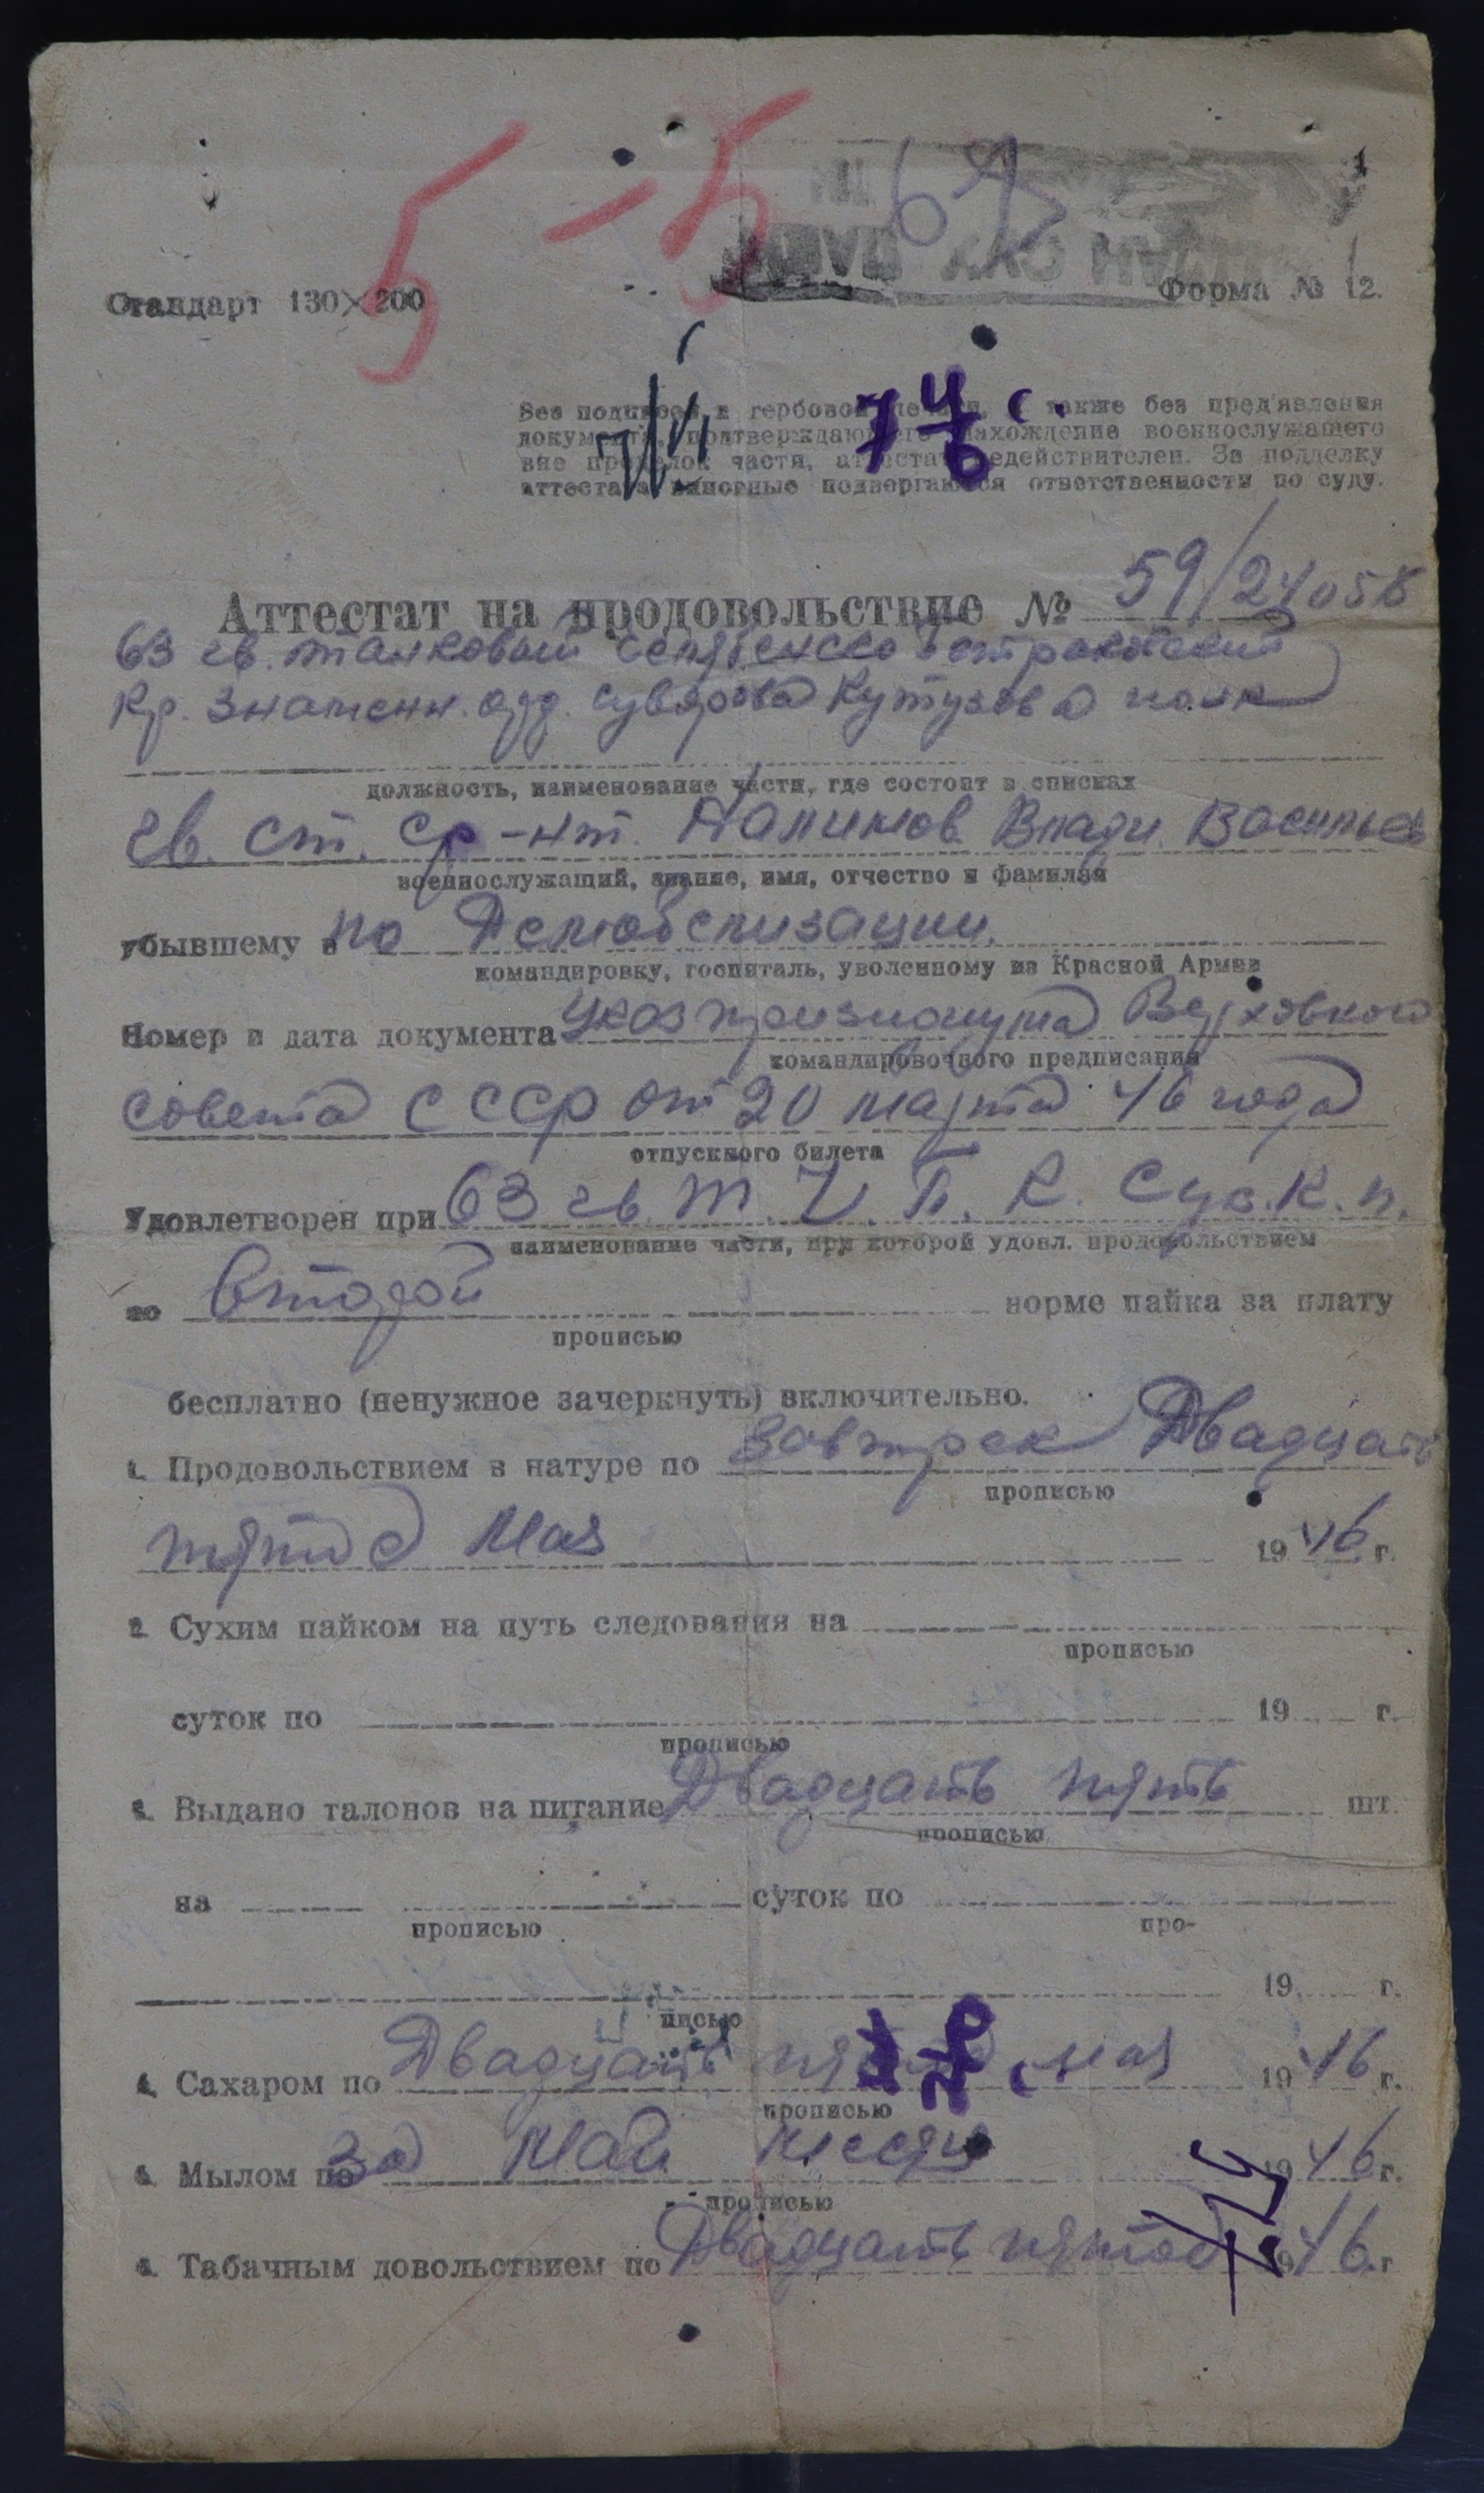 5-5
Стандарт 130×200
Форма № 12.
Без подписей и гербовой печати, а также без пред'явления
документа, подтверждающего нахождение военнослужащего
вне пределов части, аттестат недействителен. За подделку
аттестата виновные подвергаются ответственности по суду.
Аттестат на продовольствие № 59/24058
63 гв. танковый
Кр. Знаменн. орд. Суворова Кутузова полк
должность, наименование части, где состоит в списках
гв. ст. ср-нт. Налимов Влади. Васильев
военнослужащий, звание, имя, отчество и фамилия
убывшему в по Демобелизации
командировку, госпиталь, уволенному из Красной Армии
Номер и дата документа Указ Верховного
командировочного предписания
совета СССР от 20 марта 46 года
отпускного билета
Удовлетворен при 63 гв. Т. Ч. П. К. Сув. К. п.
наименование части, при которой удовл. продовольствием
по второй норме пайка за плату
прописью
бесплатно (ненужное зачеркнуть) включительно.
1. Продовольствием в натуре по завтрек Двадцать
прописью
пятое Мая 1946 г.
2. Сухим пайком на путь следования на
прописью
суток по 19 г.
прописью
3. Выдано талонов на питание Двадцать пять шт.
прописью
на суток по
прописью про-
19 г.
писью
4. Сахаром по Двадцать мая 1946 г.
прописью
5. Мылом по за Май месяц 1946 г.
прописью
6. Табачным довольствием по Двадцать пятое 1946 г